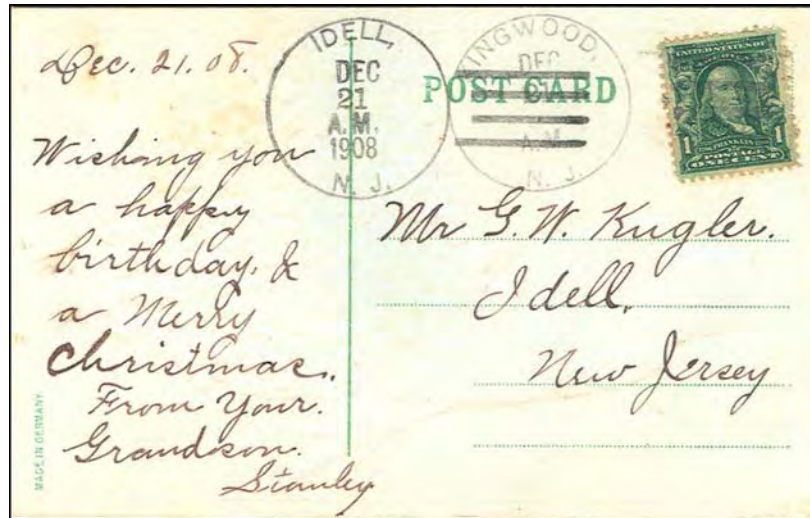 Dec. 21. 08.
Wishing you
a happy
birthday. &
a Merry
Christmas.
From Your.
Grandson.
Stanley
MADE IN GERMANY
IDELL,
DEC
21
A.M.
1908
N. J.
POST CARD
KINGWOOD,
DEC
21
A.M.
N. J.
UNITED STATES OF
AMERICA
1 1
FRANKLIN
POSTAGE
ONE CENT
Mr G. W. Kugler.
Idell,
New Jersey